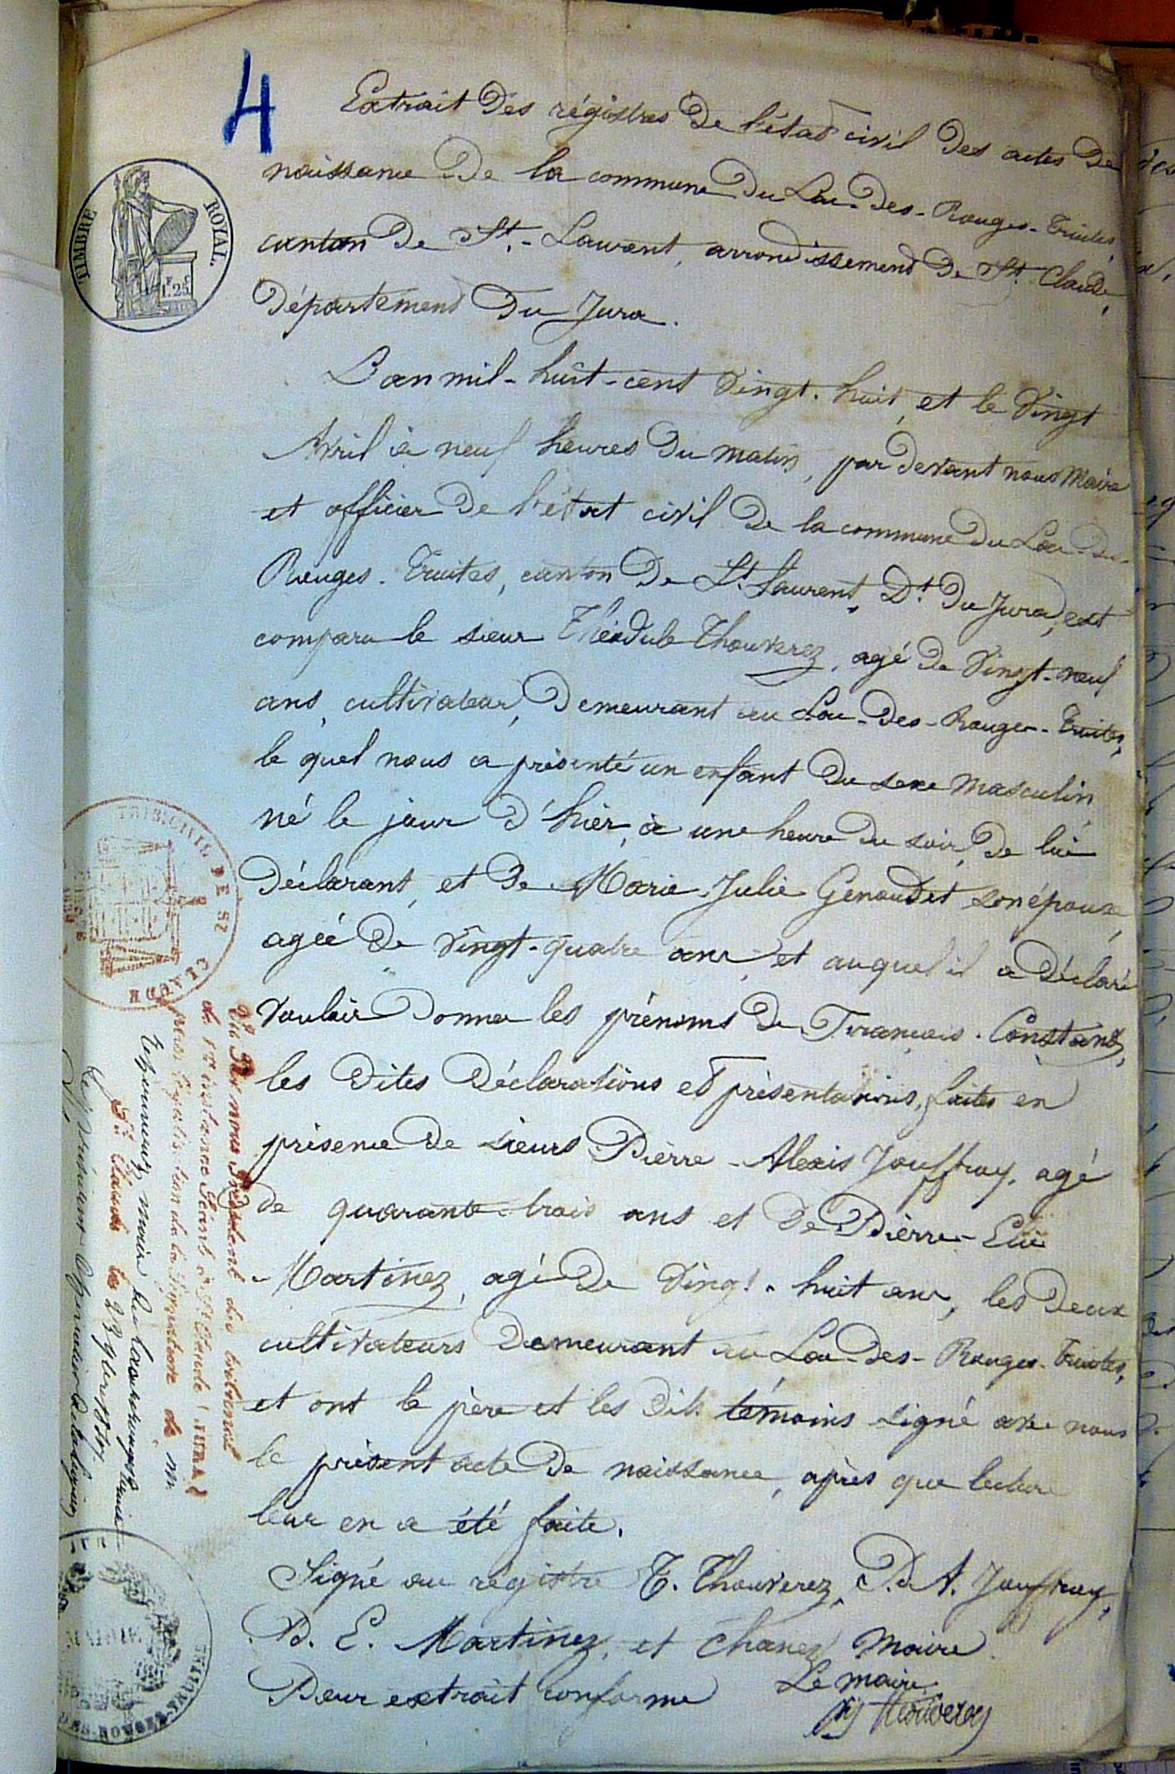 4
TIMBRE ROYAL.
1F.25C
Extrait des régistres de l'état civil des actes de
naissance de la commune du Lac-des-Rouges-Truites,
canton de St.-Laurent, arrondissement de St. Claude,
Département du Jura.
L'an mil-huit-cent vingt-huit, et le vingt
Avril à neuf heures du matin, par devant nous Maire
et officier de l'état civil de la commune du Lac-des-
Rouges-Truites, canton de St. Laurent, Dt. du Jura, est
comparu le sieur Théodule Thouverez, agé de vingt-neuf
ans, cultivateur, demeurant au Lac-des-Rouges-Truites,
le quel nous a présenté un enfant du sexe masculin,
né le jour d'hier, à une heure du soir, de lui
déclarant, et de Marie Julie Genoudet son épouse,
agée de vingt-quatre ans, et auquel il a déclaré
vouloir donner les prénoms de François-Constant,
les dites déclarations et présentations, faites en
présence de sieurs Pierre-Alexis Jouffroy, agé
de quarante-trois ans et de Pierre-Elie
Martinez, agé de vingt-huit ans, les deux
cultivateurs demeurant au Lac-des-Rouges-Truites,
et ont le père et les dits témoins signé avec nous
le présent acte de naissance, après que lecture
leur en a été faite.
Signé au régistre T. Thouverez, P. A. Jouffroy,
P. E. Martinez, et Chanez Maire.
Pour extrait conforme
Le maire
Thouverez
TRIB. CIVIL DE ST CLAUDE
Vu Par nous Président du tribunal
de 1re instance séant à St Claude (JURA)
pour légalisation de la signature de M
Thouverez maire du Lac des rouges Truites
St Claude le 23
MAIRIE
DES-ROUGES-TRUITES